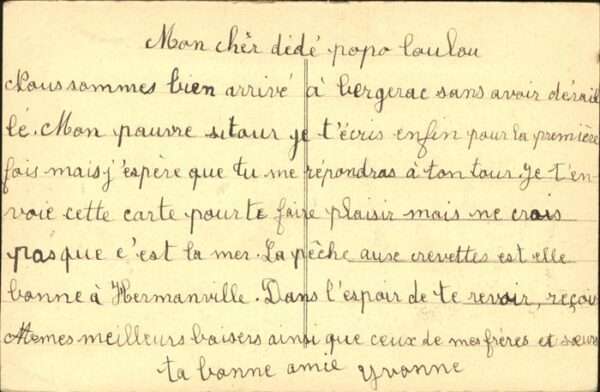 Mon chèr dédé popo loulou
Nous sommes bien arrivé à bergerac sans avoir dérail
lé. Mon pauvre sitour je t'écris enfin pour la première
fois mais j'espère que tu me répondras à ton tour. Je t'en-
voie cette carte pour te faire plaisir mais ne crois
pas que c'est la mer. La pêche aux crevettes est elle
bonne à Hermanville. Dans l'espoir de te revoir, reçois
Memes meilleurs baisers ainsi que ceux de mes frères et sœurs
ta bonne amie Yvonne